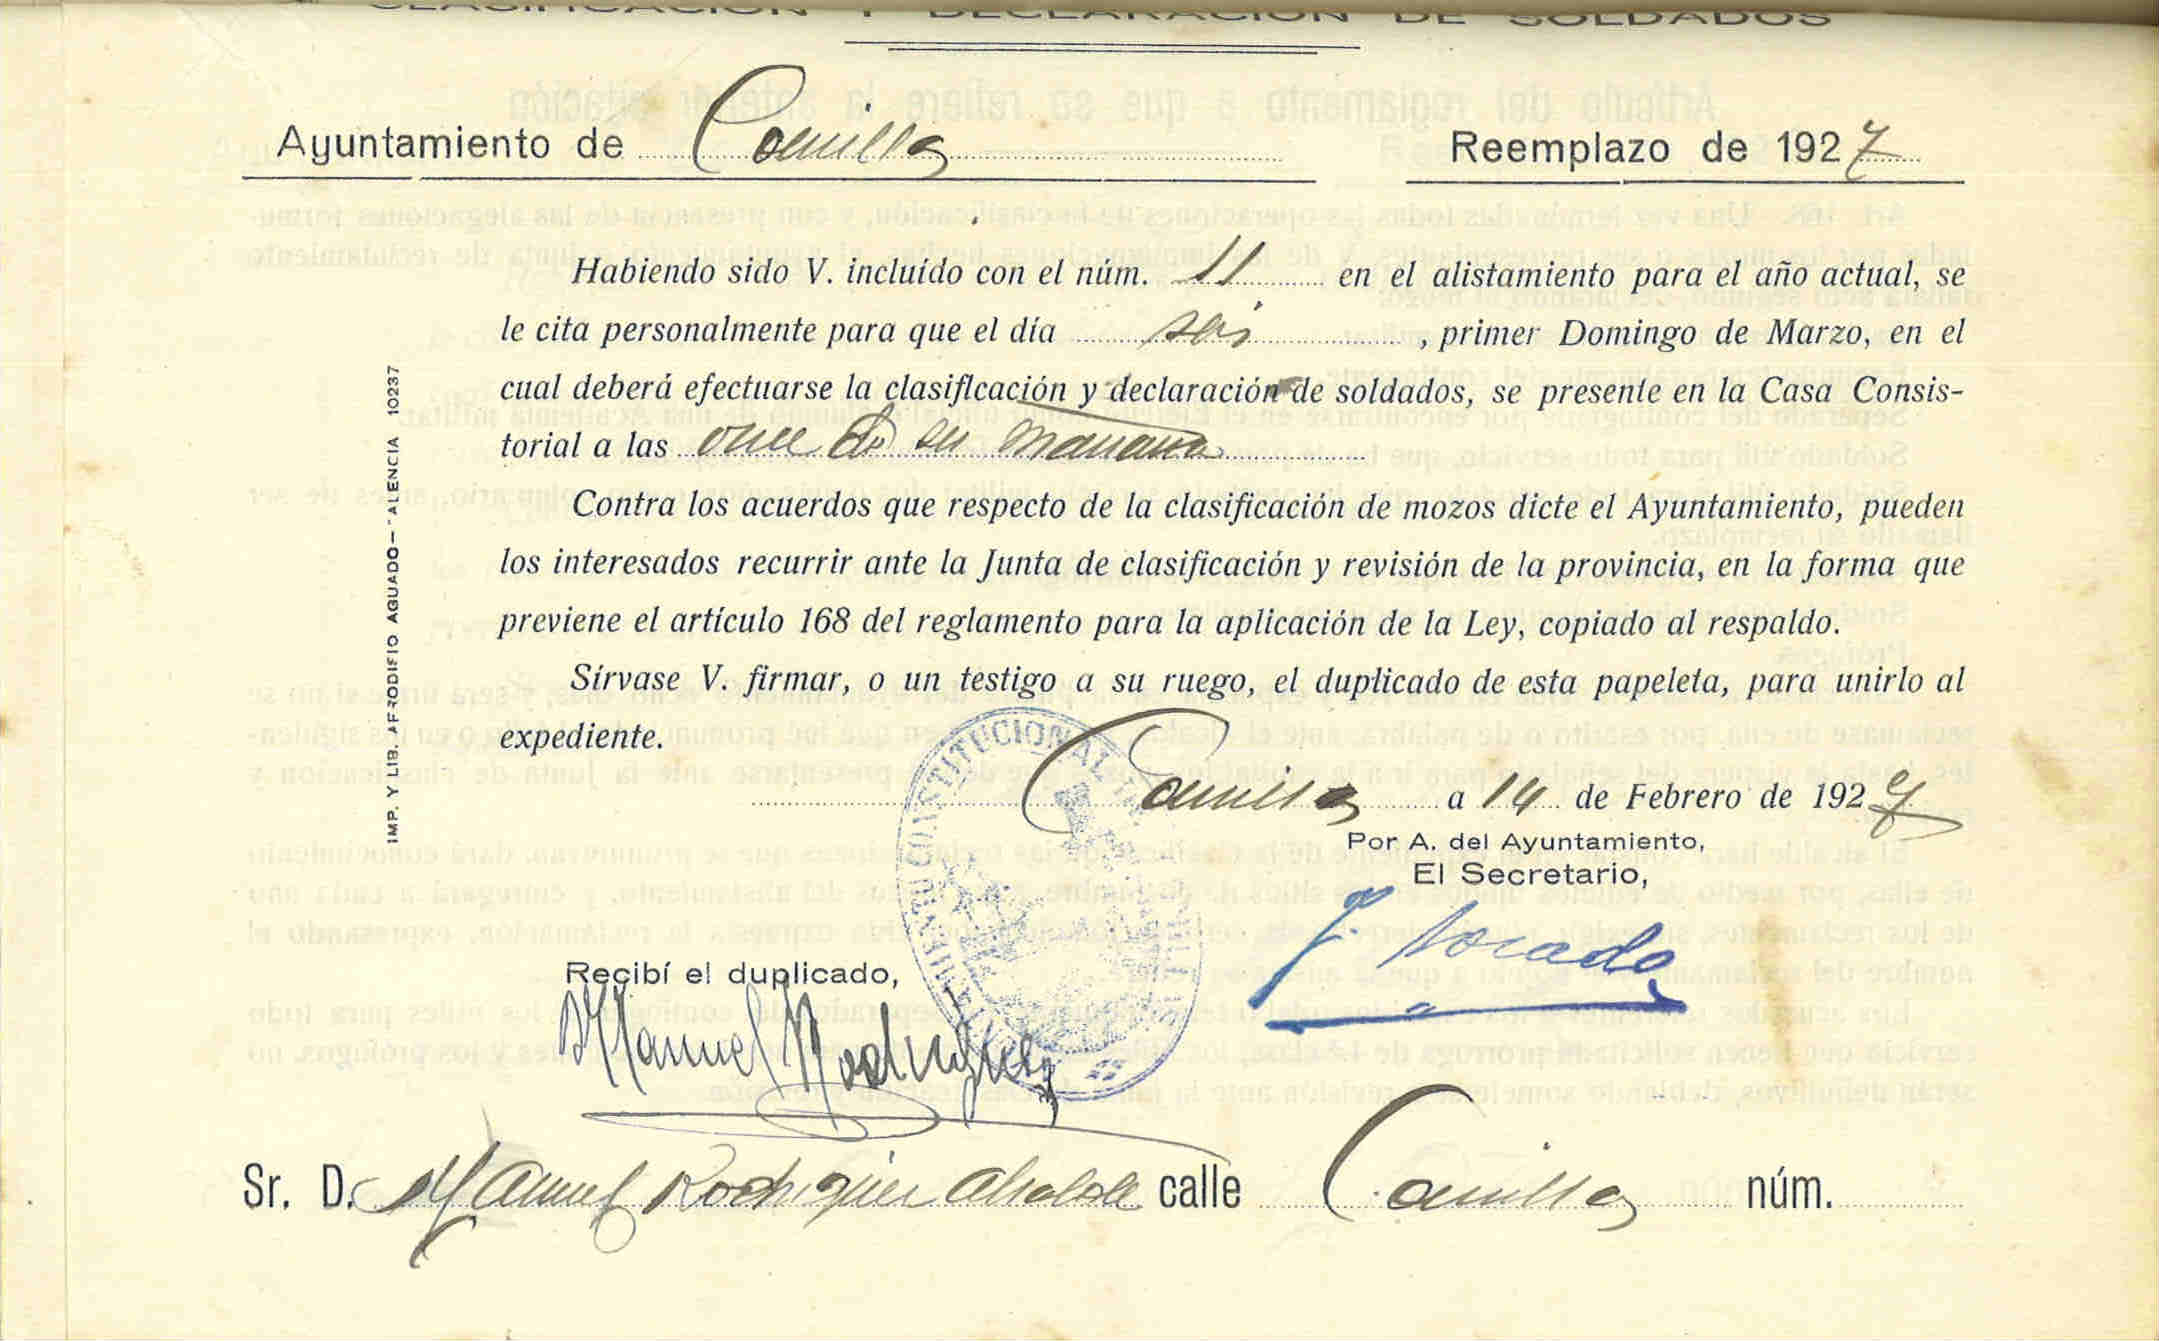 CLASIFICACIÓN Y DECLARACIÓN DE SOLDADOS
Ayuntamiento de Canillas Reemplazo de 1927
Habiendo sido V. incluído con el núm. 11 en el alistamiento para el año actual, se
le cita personalmente para que el día seis, primer Domingo de Marzo, en el
cual deberá efectuarse la clasificación y declaración de soldados, se presente en la Casa Consis-
torial a las once de su mañana
Contra los acuerdos que respecto de la clasificación de mozos dicte el Ayuntamiento, pueden
los interesados recurrir ante la Junta de clasificación y revisión de la provincia, en la forma que
previene el artículo 168 del reglamento para la aplicación de la Ley, copiado al respaldo.
Sírvase V. firmar, o un testigo a su ruego, el duplicado de esta papeleta, para unirlo al
expediente.
Canillas a 14 de Febrero de 1927
Por A. del Ayuntamiento,
El Secretario,
CONSTITUCIONAL
Recibí el duplicado,
Manuel Rodriguez
Sr. D. Manuel Rodriguez Alcalde calle Canillas núm.
IMP. Y LIB. AFRODISIO AGUADO-PALENCIA 10237